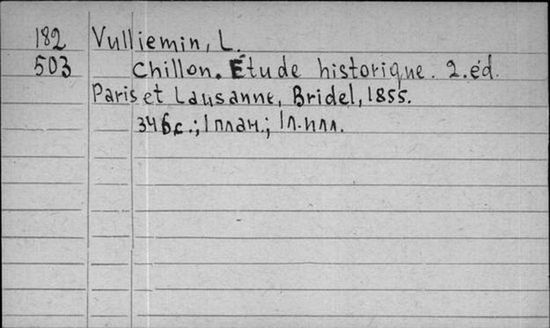 182 Vulliemin, L.
503 Chillon. Étude historique. 2. éd.
Paris et Lausanne, Bridel, 1855.
346 с.; 1 план.; 1 л. илл.